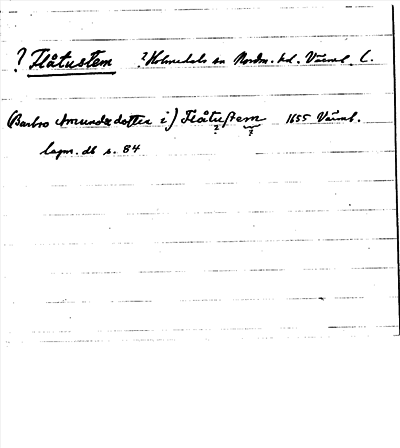 ? Flåtustem ? Holmedals sn Nordm. hd. Värml. l.
(Barbro Amundzdotter i) Flåtustem 1655 Värml.
2 ?
lagm. db s. 84